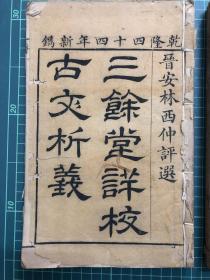 乾隆四十四年新鐫
晉安林西仲評選
三餘堂詳校
古文析義